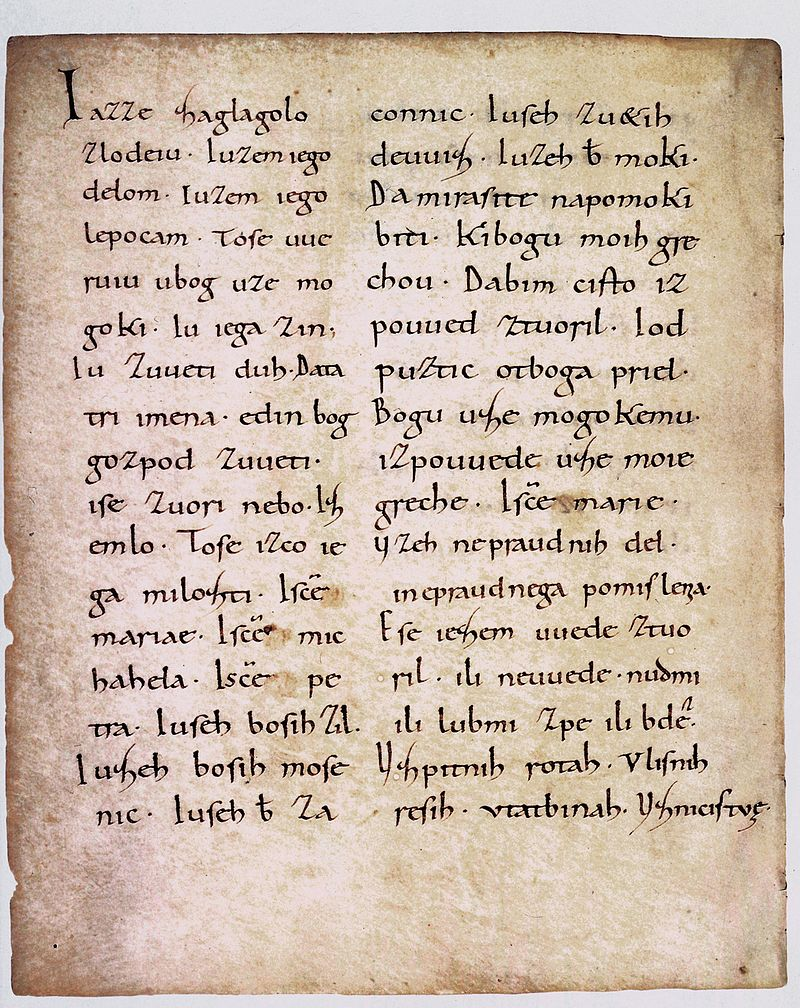 Iazze zaglagolo
zlodeiu. Iuzem iego
delom. Iuzem iego
lepocam. Tose uue
ruiu ubog uze mo
goki. Iu iega zin;
Iu zuueti duh. Data
tri imena. edin bog
gozpod zuueti.
ise zuori nebo. Iz
emlo. Tose izco ie
ga milozti. Isce
mariae. Isce mic
hahela. Isce pe
tra. Iuseh bosih zil.
Iuzeh bosih mose
nic. Iuseh b za
connic. Iuseh zu&ih
deuuiz. Iuzeh b moki.
Da mirasite napomoki
biti. Kibogu moih gre
chou. Dabim cisto iz
pouued ztuoril. Iod
puztic otboga priel.
Bogu uze mogokemu.
izpouuede uze moie
greche. Isce marie.
Uzeh nepraudnih del.
inepraudnega pomislenia.
Ese iezem uuede ztuo
ril. ili neuuede. nudmi
ili lubmi zpe ili bde.
Uzpitnih rotah. Vlisnih
resih. vtatbinah. Uznicistve.